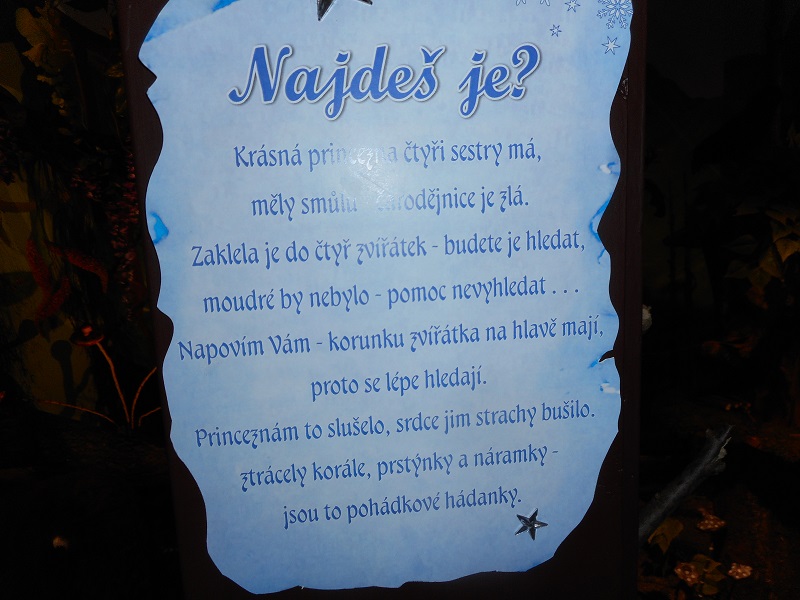 Najdeš je?
Krásná princezna čtyři sestry má,
měly smůlu - čarodějnice je zlá.
Zaklela je do čtyř zvířátek - budete je hledat,
moudré by nebylo - pomoc nevyhledat . . .
Napovím Vám - korunku zvířátka na hlavě mají,
proto se lépe hledají.
Princeznám to slušelo, srdce jim strachy bušilo.
ztrácely korále, prstýnky a náramky -
jsou to pohádkové hádanky.